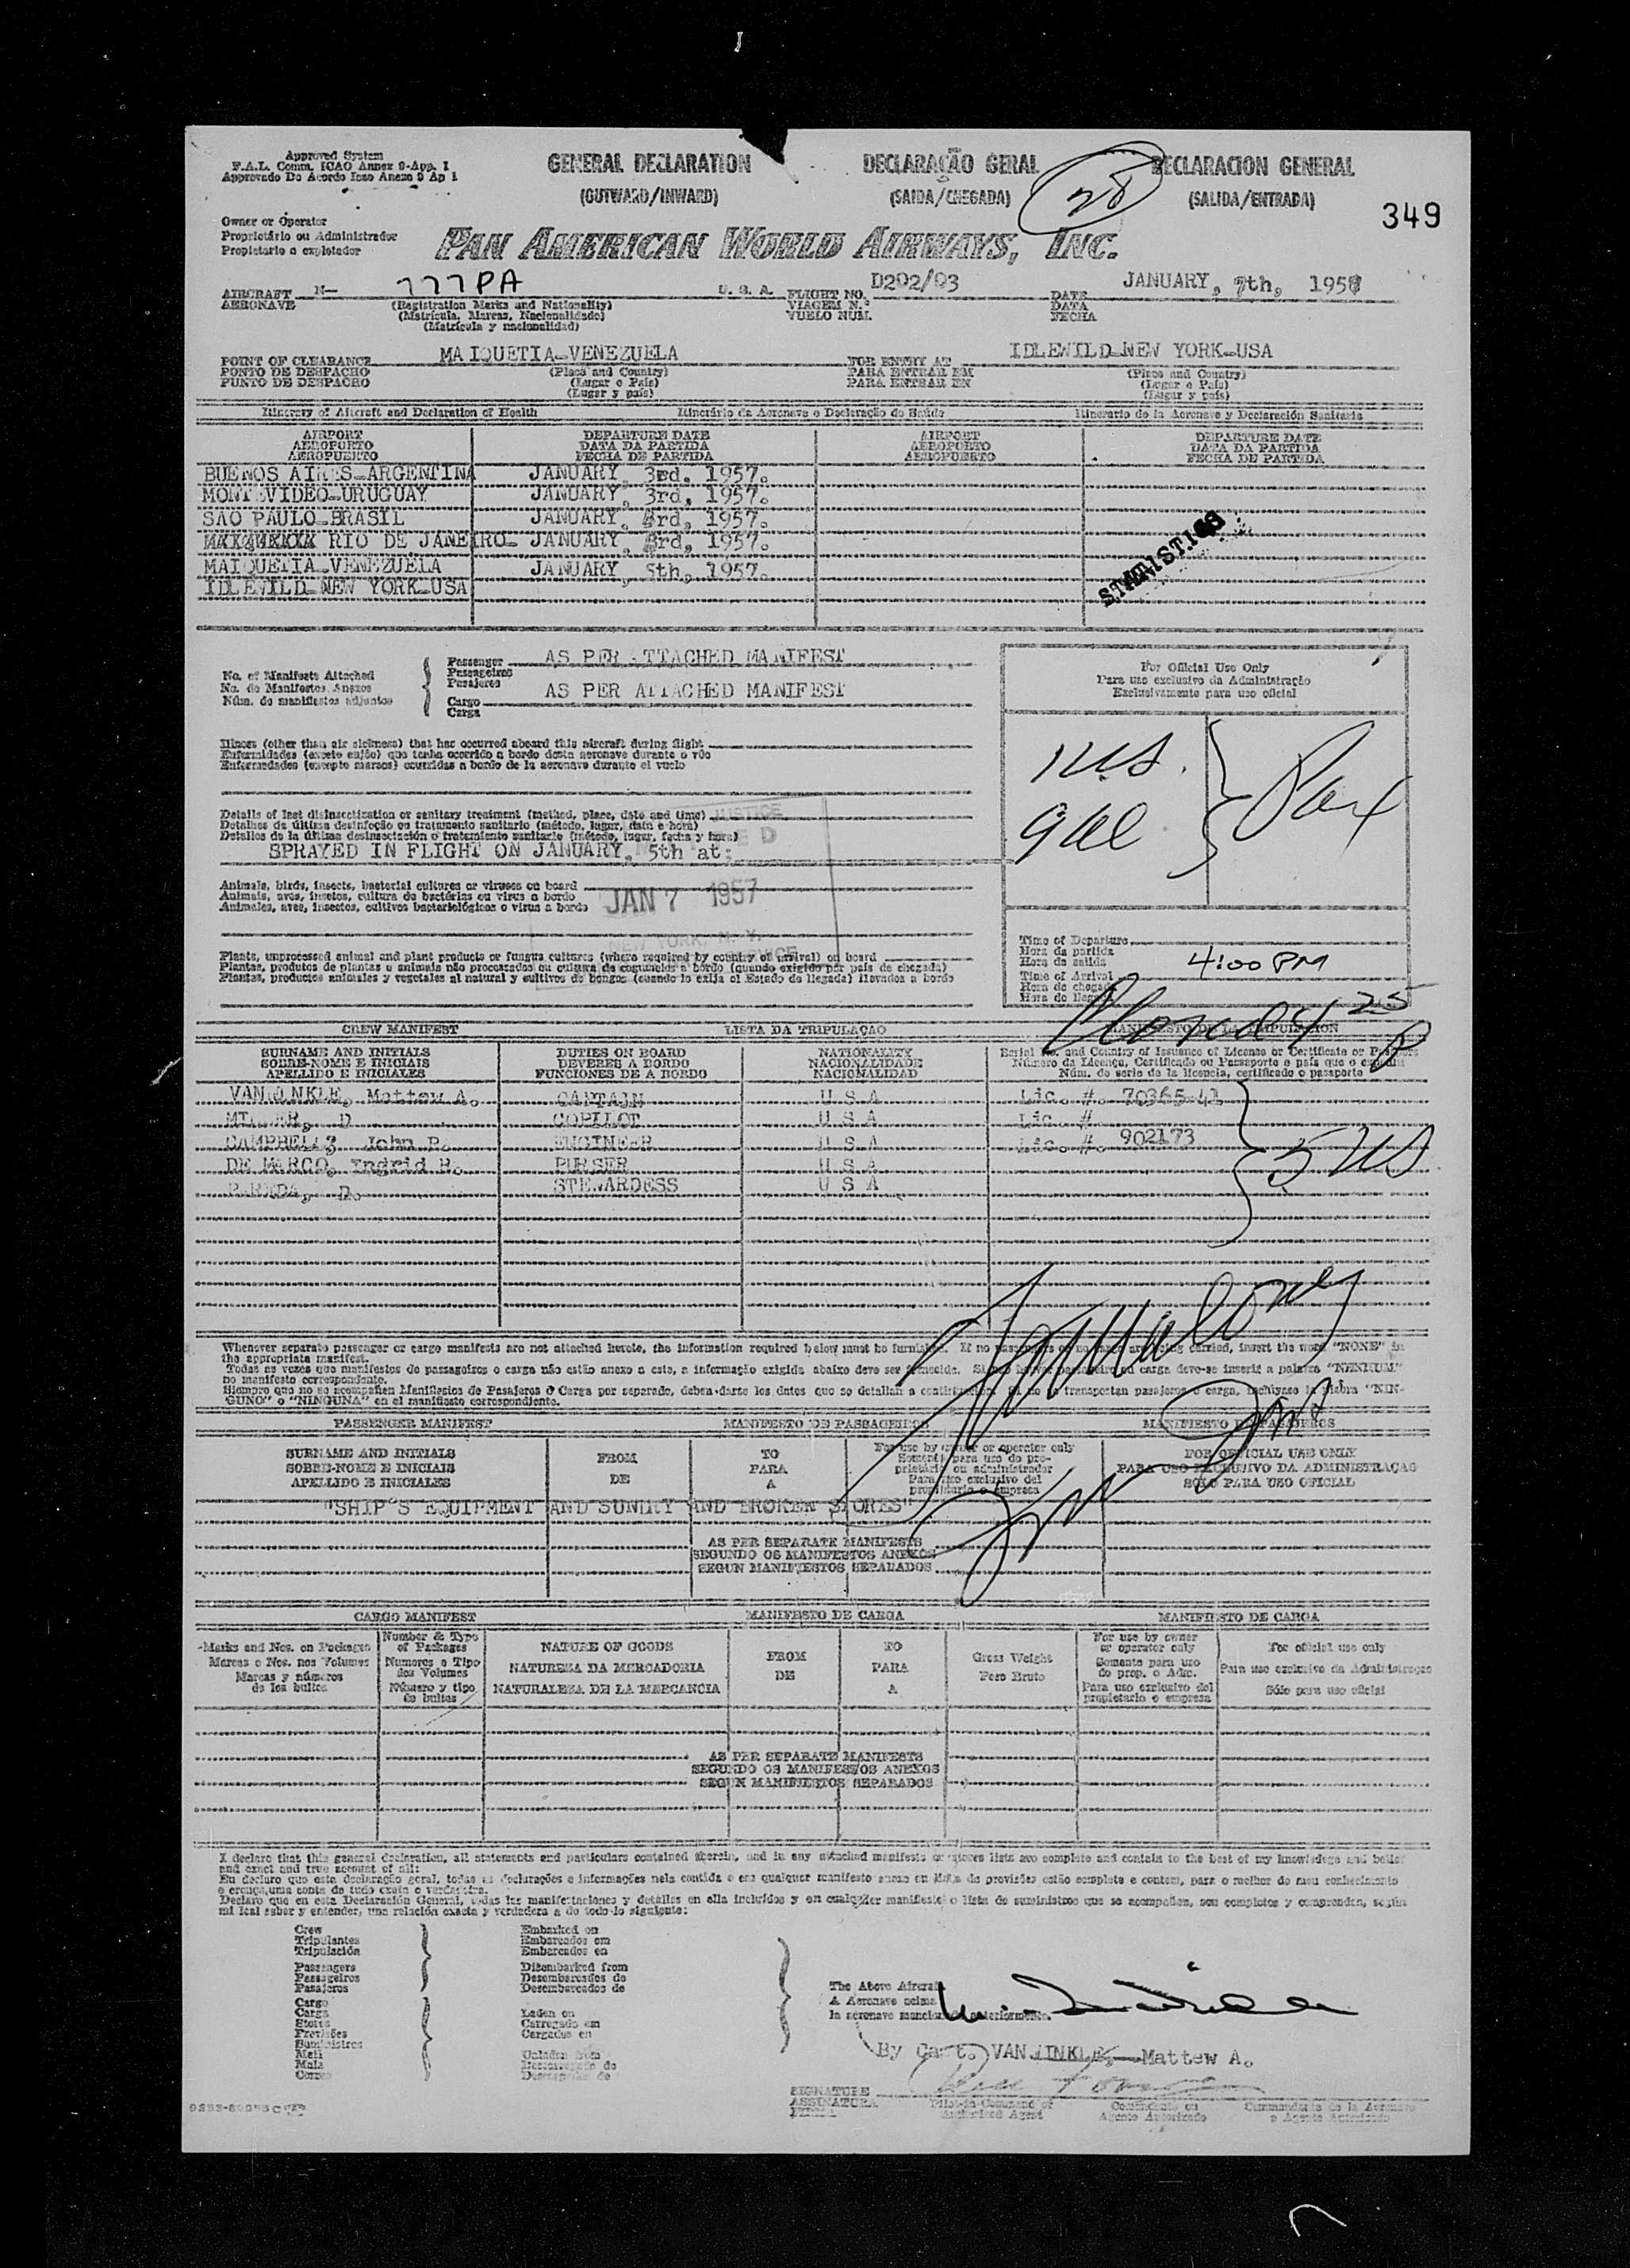 Approved System
F.A.L. Comm. ICAO Annex 9-App. 1
Approvado De Acordo Icao Anexo 9 Ap 1
GENERAL DECLARATION
(OUTWARD/INWARD)
DECLARAÇÃO GERAL
(SAIDA/CHEGADA)
28
DECLARACION GENERAL
(SALIDA/ENTRADA)
349
Owner or Operator
Proprietário ou Administrador
Propietario o explotador
PAN AMERICAN WORLD AIRWAYS, INC.
AIRCRAFT N- 777PA U. S. A. FLIGHT NO. D202/03 DATE JANUARY, 7th, 1957
AERONAVE (Registration Marks and Nationality) VIAGEM N.º DATA
(Matrícula, Marcas, Nacionalidade) VUELO NUM. FECHA
(Matrícula y nacionalidad)
POINT OF CLEARANCE MAIQUETIA-VENEZUELA FOR ENTRY AT IDLEWILD-NEW YORK-USA
PONTO DE DESPACHO (Place and Country) PARA ENTRAR EM (Place and Country)
PUNTO DE DESPACHO (Lugar e País) PARA ENTRAR EN (Lugar e País)
(Lugar y país) (Lugar y país)
Itinerary of Aircraft and Declaration of Health Itinerário da Aeronave e Declaração de Saúde Itinerario de la Aeronave y Declaración Sanitaria
AIRPORT DEPARTURE DATE AIRPORT DEPARTURE DATE
AEROPORTO DATA DA PARTIDA AEROPORTO DATA DA PARTIDA
AEROPUERTO FECHA DE PARTIDA AEROPUERTO FECHA DE PARTIDA
BUENOS AIRES-ARGENTINA JANUARY, 3rd, 1957.
MONTEVIDEO-URUGUAY JANUARY, 3rd, 1957.
SAO PAULO-BRASIL JANUARY, 3rd, 1957.
RIO DE JANEIRO- JANUARY, 3rd, 1957.
MAIQUETIA-VENEZUELA JANUARY, 5th, 1957.
IDLEWILD-NEW YORK-USA
No. of Manifests Attached
No. de Manifestos Anexos
Núm. de manifiestos adjuntos
Passenger AS PER ATTACHED MANIFEST
Passageiros
Pasajeros
Cargo AS PER ATTACHED MANIFEST
Carga
For Official Use Only
Para uso exclusivo da Administração
Exclusivamente para uso oficial
Pax
Illness (other than air sickness) that has occurred aboard this aircraft during flight
Enfermidades (exceto enjôo) que tenha ocorrido a bordo desta aeronave durante o vôo
Enfermedades (excepto mareos) ocurridas a bordo de la aeronave durante el vuelo
Details of last disinsectization or sanitary treatment (method, place, date and time)
Detalhes da última desinfeção ou tratamento sanitario (método, lugar, data e hora)
Detalles de la última desinsectación o tratamiento sanitario (método, lugar, fecha y hora)
SPRAYED IN FLIGHT ON JANUARY, 5th at:
JUSTICE
Animals, birds, insects, bacterial cultures or viruses on board
Animais, aves, insetos, cultura de bactérias ou virus a bordo
Animales, aves, insectos, cultivos bacteriológicos o virus a bordo
JAN 7 1957
NEW YORK, N. Y.
SERVICE
Plants, unprocessed animal and plant products or fungus cultures (where required by country of arrival) on board
Plantas, produtos de plantas e animais não processados ou cultura de cogumelos a bordo (quando exigido por pais de chegada)
Plantas, productos animales y vegetales al natural y cultivos de hongos (cuando lo exija el Estado de llegada) llevados a bordo
Time of Departure
Hora da partida
Hora de salida
Time of Arrival 4:00 PM
Hora de chegada
Hora de llegada
CREW MANIFEST LISTA DA TRIPULAÇAO MANIFIESTO DE LA TRIPULACION
SURNAME AND INITIALS DUTIES ON BOARD NATIONALITY Serial No. and Country of Issuance of License or Certificate or Passport
SOBRE-NOME E INICIAIS DEVERES A BORDO NACIONALIDADE Número da Licença, Certificado ou Passaporte e país que o expediu
APELLIDO E INICIALES FUNCIONES DE A BORDO NACIONALIDAD Núm. de serie de la licencia, certificado o pasaporte
VANWINKLE, Mattew A. CAPTAIN U S A Lic. #. 70365-41
MILLER, D COPILOT U S A Lic. #
CAMPBELL, John P. ENGINEER U S A Lic. #. 902173
DE MARCO, Ingrid B. PURSER U S A
D. STEWARDESS U S A
5 US
Whenever separate passenger or cargo manifests are not attached hereto, the information required below must be furnished. If no passengers or no cargo are being carried, insert the word "NONE" in
the appropriate manifest.
Todas as vezes que manifestos de passageiros o cargo não estão anexo a esta, a informação exigida abaixo deve ser fornecida. deve-se inserir a palavra "NENHUM"
no manifesto correspondente.
Siempre que no se acompañen Manifiestos de Pasajeros o Carga por separado, deben darse los datos que se detallan a continuación. Si no se transportan pasajeros o carga, inclúyase la palabra "NIN-
GUNO" o "NINGUNA" en el manifiesto correspondiente.
PASSENGER MANIFEST MANIFESTO DE PASSAGEIROS MANIFIESTO DE PASAJEROS
SURNAME AND INITIALS FROM TO For use by owner or operator only FOR OFFICIAL USE ONLY
SOBRE-NOME E INICIAIS DE PARA Somente para uso do proprietário ou administrador PARA USO EXCLUSIVO DA ADMINISTRAÇAO
APELLIDO E INICIALES A Para uso exclusivo del propietario o empresa SOLO PARA USO OFICIAL
"SHIP'S EQUIPMENT AND SUNDRY AND BROKEN STORES"
AS PER SEPARATE MANIFESTS
SEGUNDO OS MANIFESTOS ANEXOS
SEGUN MANIFIESTOS SEPARADOS
CARGO MANIFEST MANIFESTO DE CARGA MANIFIESTO DE CARGA
Marks and Nos. on Packages Number & Type of Packages NATURE OF GOODS FROM TO Gross Weight For use by owner or operator only For official use only
Marcas e Nos. nos Volumes Numeros e Tipo dos Volumes NATUREZA DA MERCADORIA DE PARA Peso Bruto Somente para uso do prop. o Adm. Para uso exclusivo da Administraçao
Marcas y números de los bultos Número y tipo de bultos NATURALEZA DE LA MERCANCIA A Para uso exclusivo del propietario o empresa Sólo para uso oficial
AS PER SEPARATE MANIFESTS
SEGUNDO OS MANIFESTOS ANEXOS
SEGUN MANIFIESTOS SEPARADOS
I declare that this general declaration, all statements and particulars contained therein, and in any attached manifests or stores lists are complete and contain to the best of my knowledge and belief
and exact and true account of all:
Eu declaro que esta declaração geral, todas as declarações e informações nela contida e em qualquer manifesto anexo ou lista de provisões estão completo e contem, para o melhor do meu conhecimento
e crença, uma conta de tudo exata e verdadeira.
Declaro que en esta Declaración General, todas las manifestaciones y detalles en ella incluidos y en cualquier manifiesto o lista de suministros que se acompañen, son completos y comprenden, según
mi leal saber y entender, una relación exacta y verdadera a de todo lo siguiente:
Crew Embarked on
Tripulantes Embarcados em
Tripulación Embarcados en
Passengers Disembarked from
Passageiros Desembarcados de
Pasajeros Desembarcados de
Cargo
Carga Laden on
Stores Carregado em
Provisões Cargados en
Suministros
Mail Unladen from
Mala Descarregado de
Correo Descargados de
The Above Aircraft
A Aeronave acima
la aeronave mencionada anteriormente.
By Capt. VANWINKLE, Mattew A.
SIGNATURE
ASSINATURA
FIRMA
Pilot-in-Command or Authorized Agent
Comandante ou Agente Autorizado
Commandante de la Aeronave o Agente Autorizado